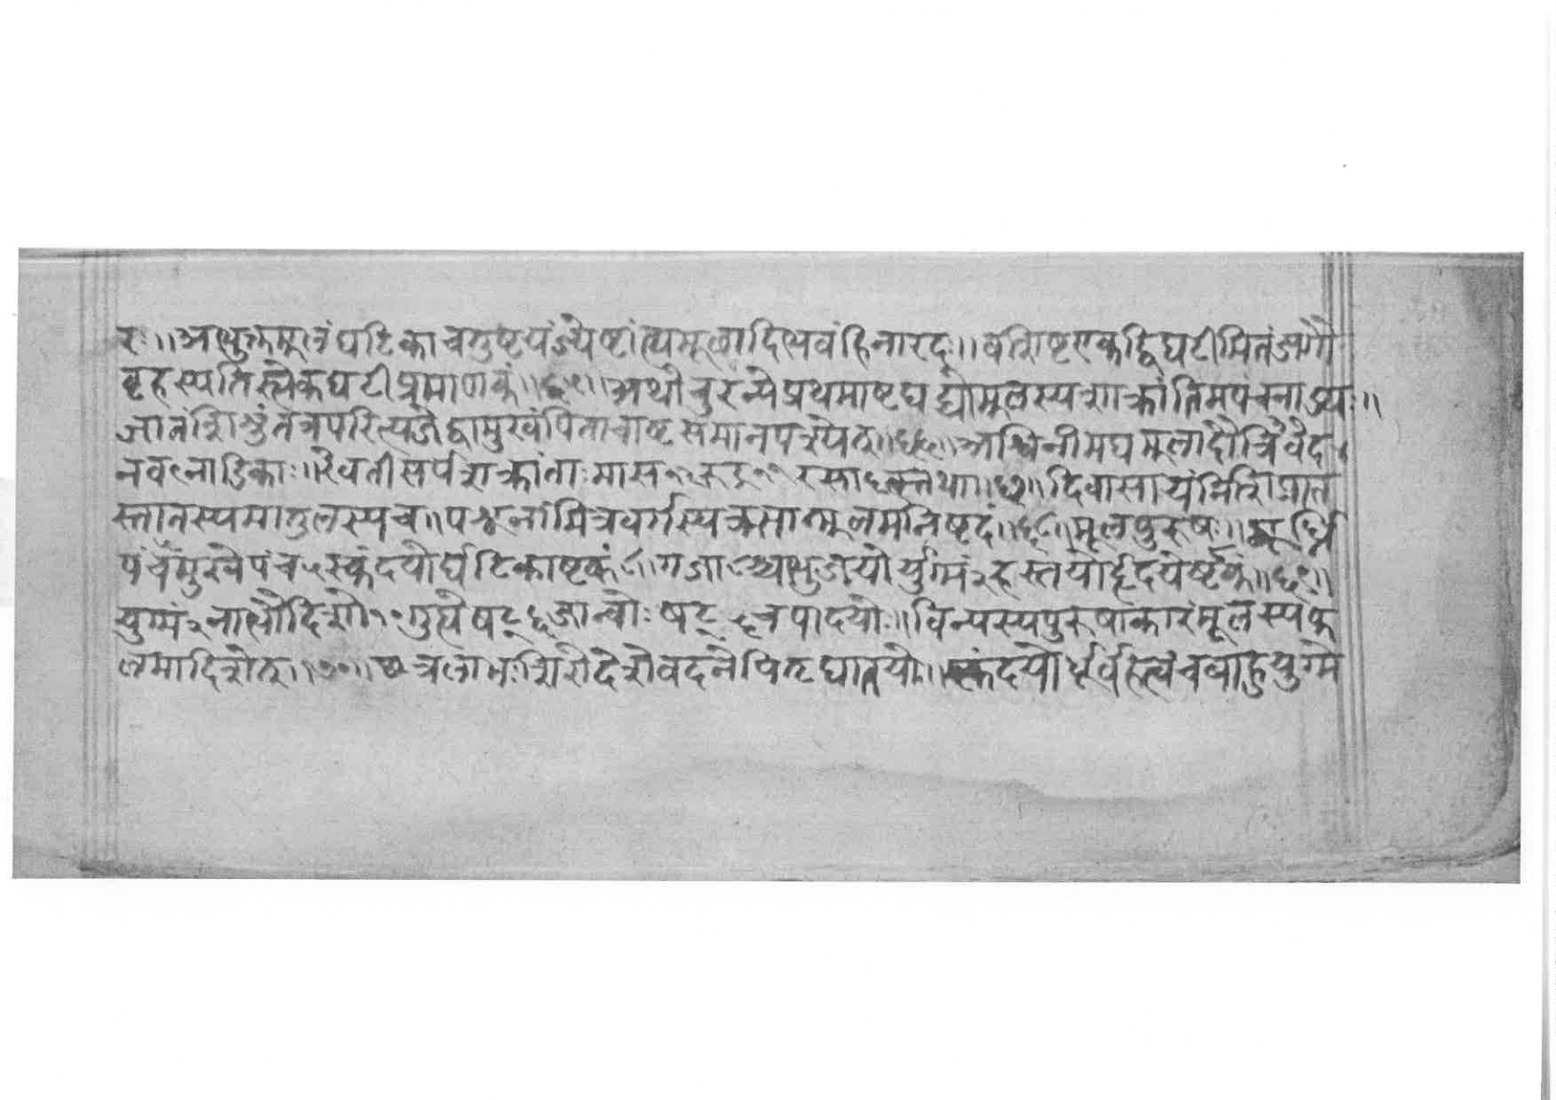 रः॥अभुक्तमूलं घटिकाचतुष्टयं ज्येष्टांत्यमूलादिभवं हि नारदः॥ वसिष्टएकद्विघटीमितं जगौ
बृहस्पतिस्त्वेकघटीप्रमाणकं॥ अथोचुरन्येप्रथमाष्टघट्योमूलस्यशाक्रांतिमपंचनाड्यः॥
जातंशिशुंतत्रपरित्यजेद्वामुखंपितास्याष्टसमानपश्येत्॥ अश्विनीमघमूलादौत्रिवेद
नवनाडिकाः॥रेवतीसर्पशक्रांताःमास तथा॥ दिवासायंनिशिप्रात
स्तातस्यमातुलस्यच॥पशूनांमित्रवर्गस्यक्रमान्मूलमनिष्टदं॥६८॥मूलपुरुषः॥मूर्ध्नि
पंचमुखेपंच५स्कंदयोर्घटिकाष्टकं८गजा८श्चभुजयोर्युग्मं२हस्तयोर्हृदयेष्टकं॥६९॥
युग्मं२नाभौदिशो१०गुह्येषट्६जान्वोःषट्६चपादयोः॥विन्यस्यपुरुषाकारंमूलस्यफ
लमादिशेत्॥७०॥छत्रलाभःशिरोदेशेवदनेपितृघातयोः॥स्कंदयोर्धूर्वहत्वंचबाहुयुग्मे